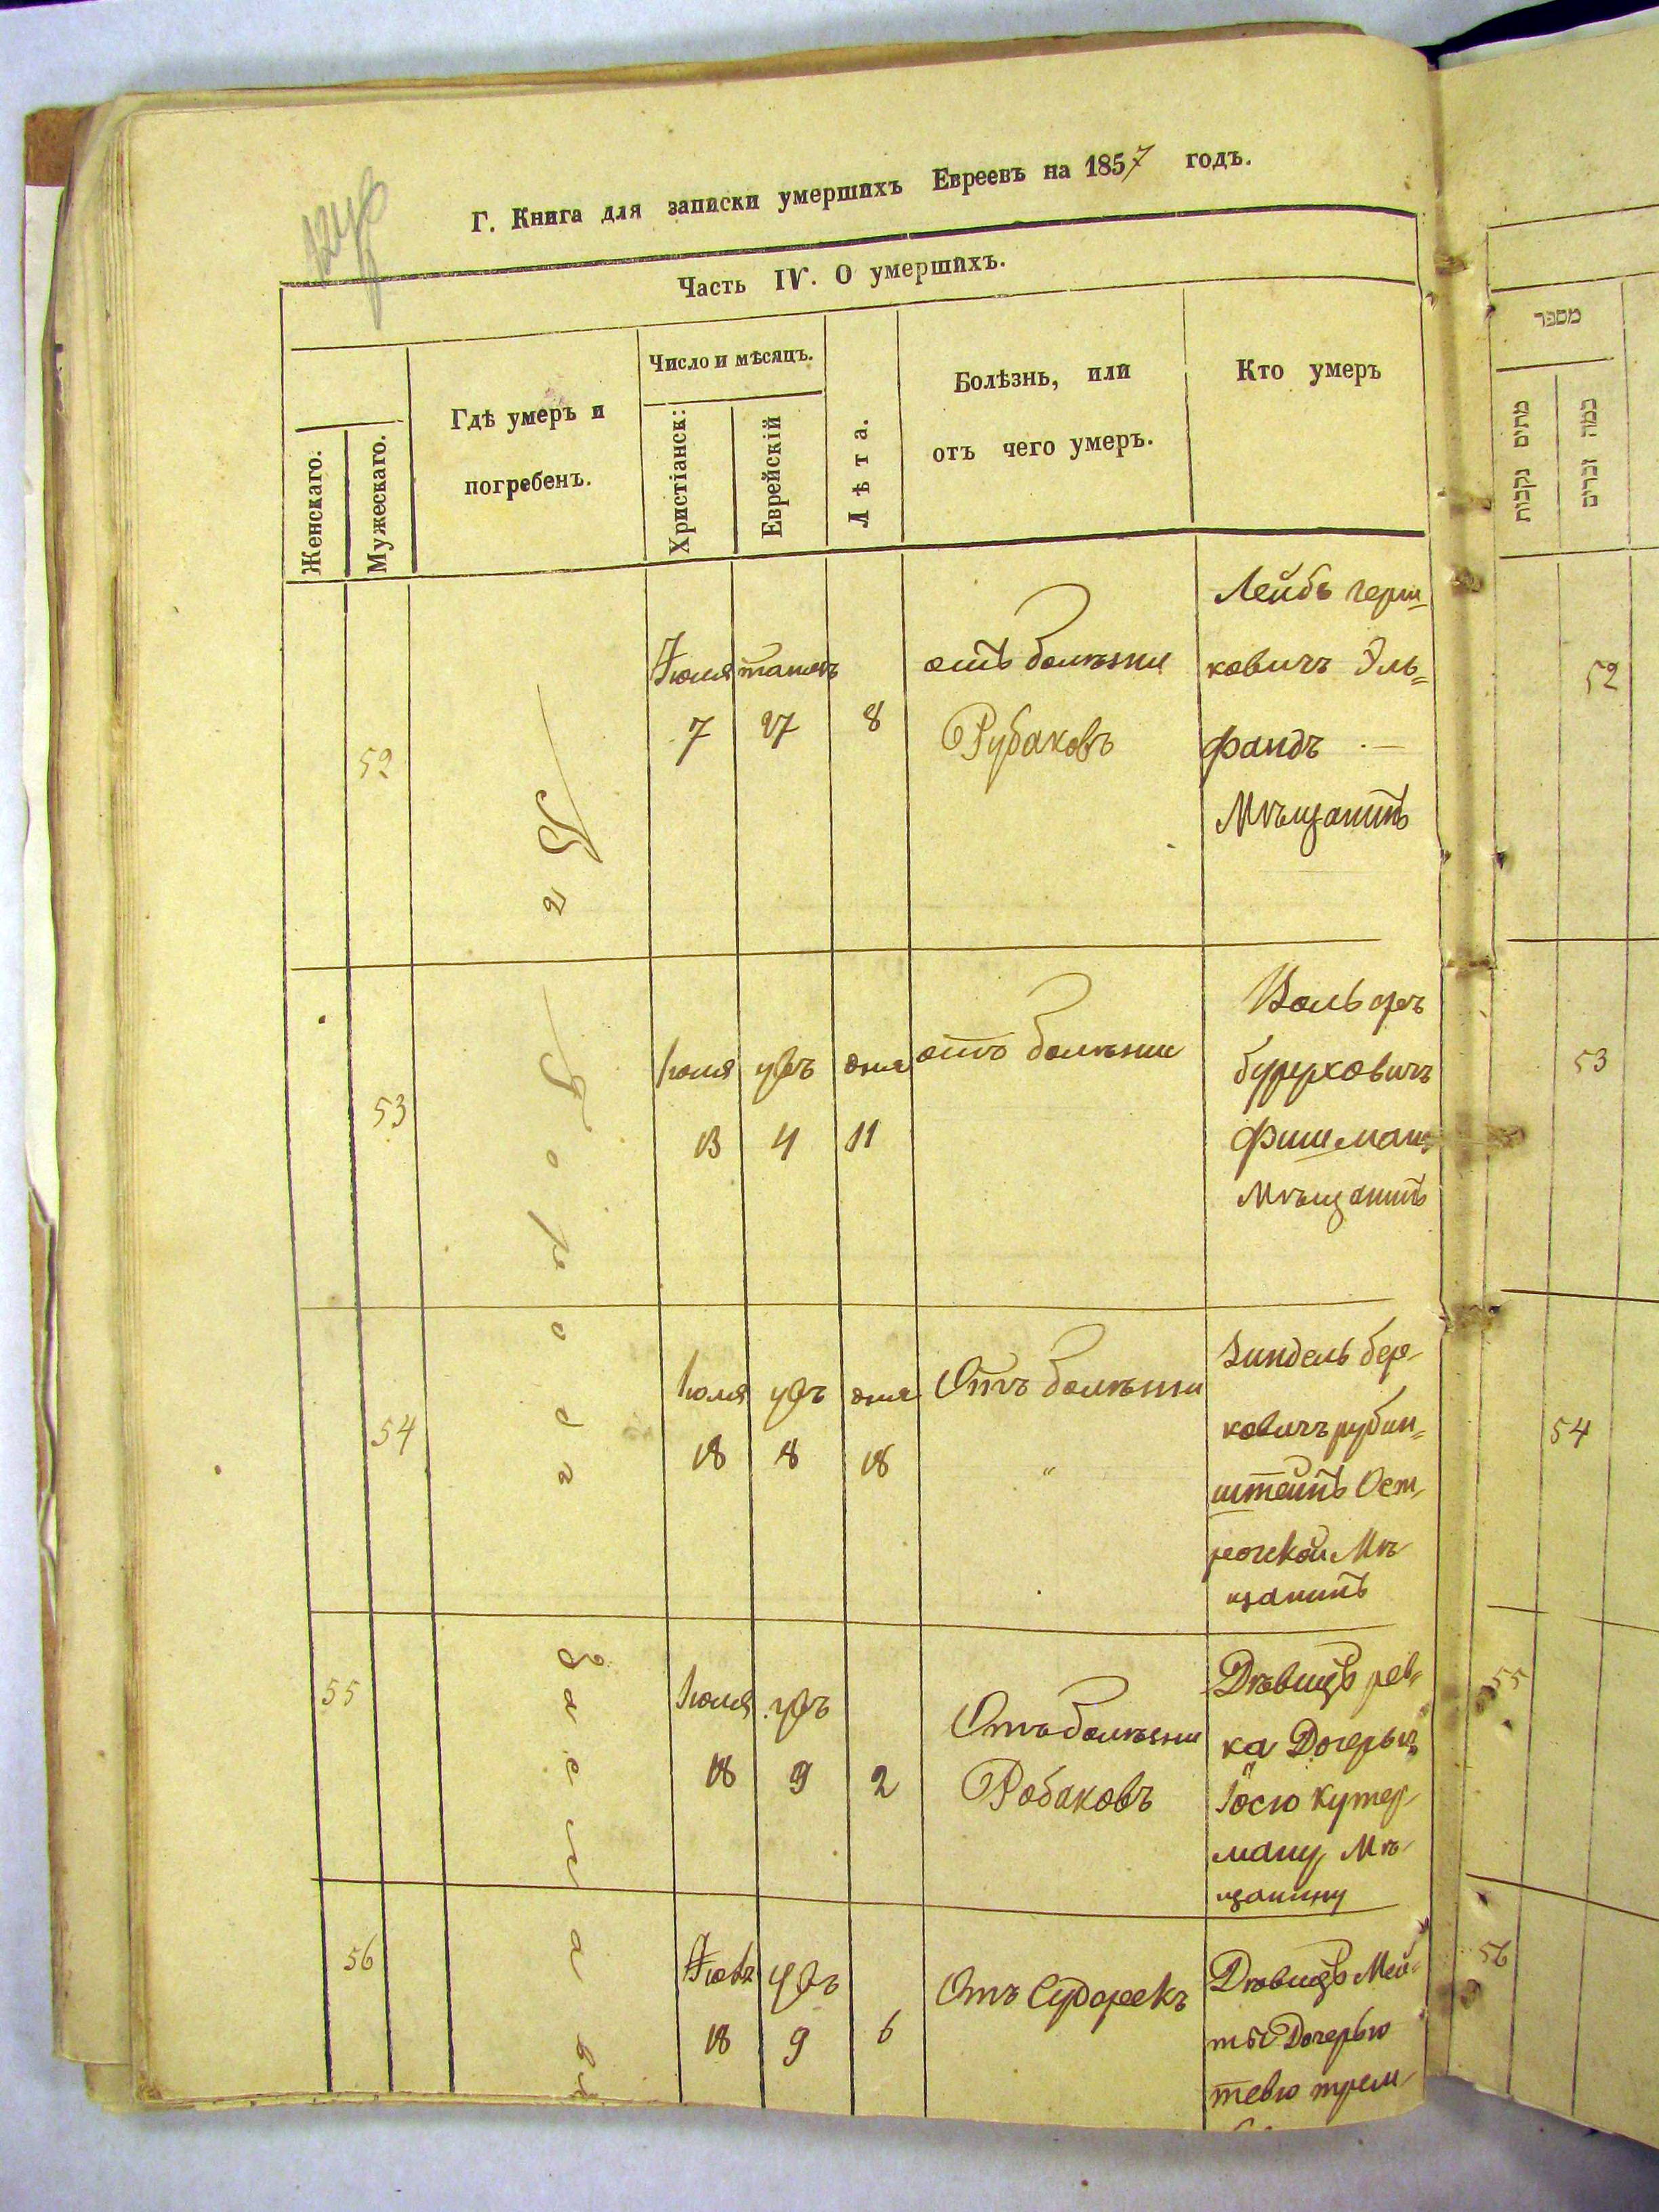 Г. Книга для записки умершихъ Евреевъ на 1857 годъ.
Часть IV. О умершихъ.
Женскаго.
Мужескаго.
Гдѣ умеръ и
погребенъ.
Число и мѣсяцъ.
Христіанск:
Еврейскій
Лѣта.
Болѣзнь, или
отъ чего умеръ.
Кто умеръ
52
Іюля
7
27
8
отъ болѣзни
Рубаковъ
Лейбъ герш-
ковичъ Эль=
фандъ
Мѣщанинъ
53
Іюля
13
4
дня
11
отъ болѣзни
Вольфъ
бурухковичъ
Фишман
Мѣщанинъ
54
Іюля
18
8
дня
18
Отъ болѣзни
Зиндель бер-
ковичъ рубин=
штейнъ Ост-
рожской Мѣ-
щанинъ
55
Іюля
18
9
2
Отъ болѣзни
Робаковъ
Дѣвица рев=
ка Дочерью
Іосю Кутер-
ману Мѣ-
щанину
56
18
9
6
Отъ Судорекъ
Дѣвица
Дочерью
מספר
מתים נקבות
כמה זכרים
52
53
54
55
56